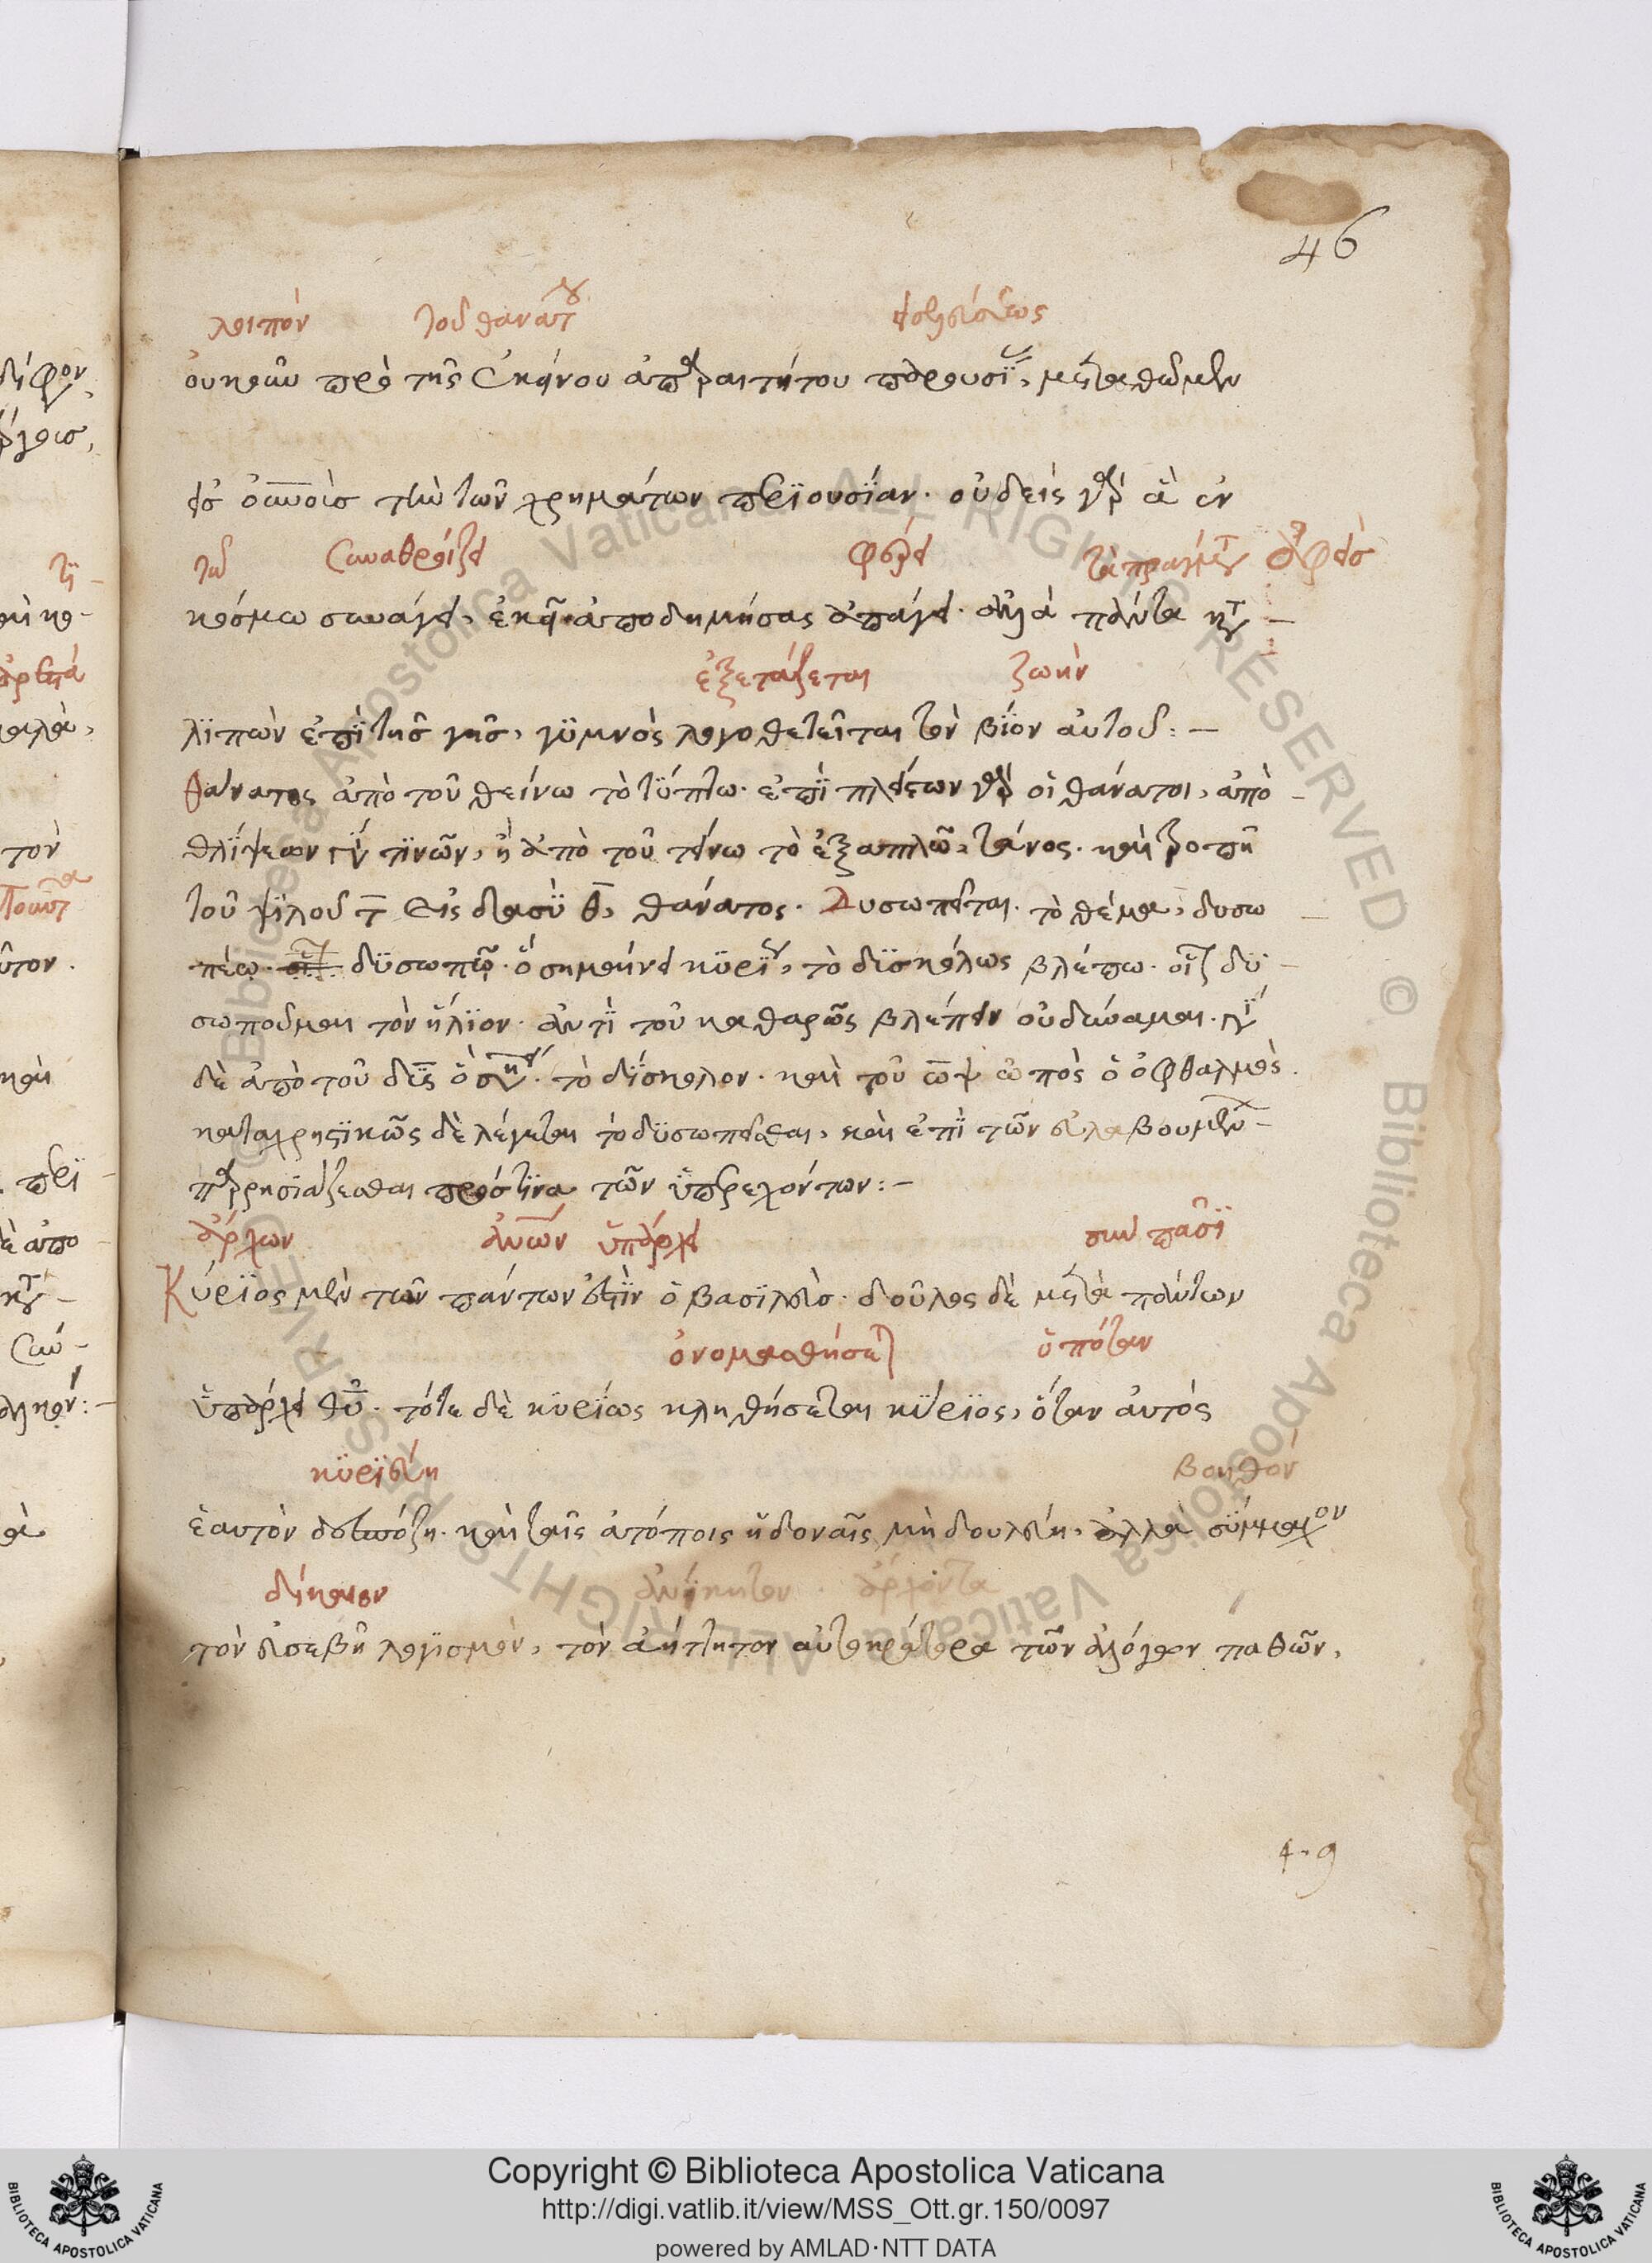 46
λοιπὸν τοῦ θανάτου εἰσελεύσεως
οὐκοῦν πρὸ τῆς ἐκείνου ἀπαραιτήτου παρουσίας, μεταθῶμεν
εἰς οὐνοὺς τὴν τῶν χρημάτων περιουσίαν. οὐδεὶς γὰρ ἃ ἐν
τῶ συναθροίζει φέρει τὰ πράγματα ἀφεὶς
κόσμω συνάγει, ἐκεῖ ἀποδημήσας ἀπάγει. ἀλλὰ πάντα κατα
ἐξετάζεται ζωὴν
λιπὼν ἐπὶ τῆς γῆς, γυμνὸς λογοθετεῖται τὸν βίον αὐτοῦ:
θάνατος ἀπὸ τοῦ θείνω τὸ τύπτω. ἐπὶ πλείστων γὰρ οἱ θάνατοι, ἀπὸ
θλίψεων γίν τινῶν, ἢ ἀπὸ τοῦ τείνω τὸ ἐξαπλῶ, τάνος. καὶ τροπῆ
τοῦ ψιλοῦ τ εἰς δασὺ θ, θάνατος. Δυσωπεῖται. τὸ θέμα, δυσω
πέω. δυσωπῶ. ὃ σημαίνει κυρίως, τὸ δυσκόλως βλέπω. οἷον δυ
σωποῦμαι τὸν ἥλιον. ἀντὶ τοῦ καθαρῶς βλέπειν οὐ δύναμαι. γί
δὲ ἀπὸ τοῦ δυς ὃ σημαίνει τὸ δύσκολον. καὶ τοῦ ὢψ ὠπὸς ὁ ὀφθαλμός.
καταχρηστικῶς δὲ λέγεται τὸ δυσωπεῖσθαι, καὶ ἐπὶ τῶν εὐλαβουμένων
παρρησιάζεσθαι πρός τινα τῶν ὑπερεχόντων:
ἄρχων ἀνων ὑπάρχει σὺν πᾶσι
Κύριος μὲν τῶν πάντων ἐστὶν ὁ βασιλεὺς. δοῦλος δὲ μετὰ πάντων
ὀνομασθήσεται ὁπόταν
ὑπάρχει θυ. τότε δὲ κυρίως κληθήσεται κύριος, ὅταν αὐτὸς
κυριεύη βοηθόν
ἑαυτὸν δεσπόζη. καὶ ταῖς ἀτόποις ἡδοναῖς μὴ δουλεύη. ἀλλὰ σύμμαχον
δίκαιον ἀνίκητον. ἄρχοντα
τὸν εὐσεβῆ λογισμὸν, τὸν ἀήττητον αὐτοκράτορα τῶν ἀλόγων παθῶν,
Copyright © Biblioteca Apostolica Vaticana
http://digi.vatlib.it/view/MSS_Ott.gr.150/0097
powered by AMLAD·NTT DATA